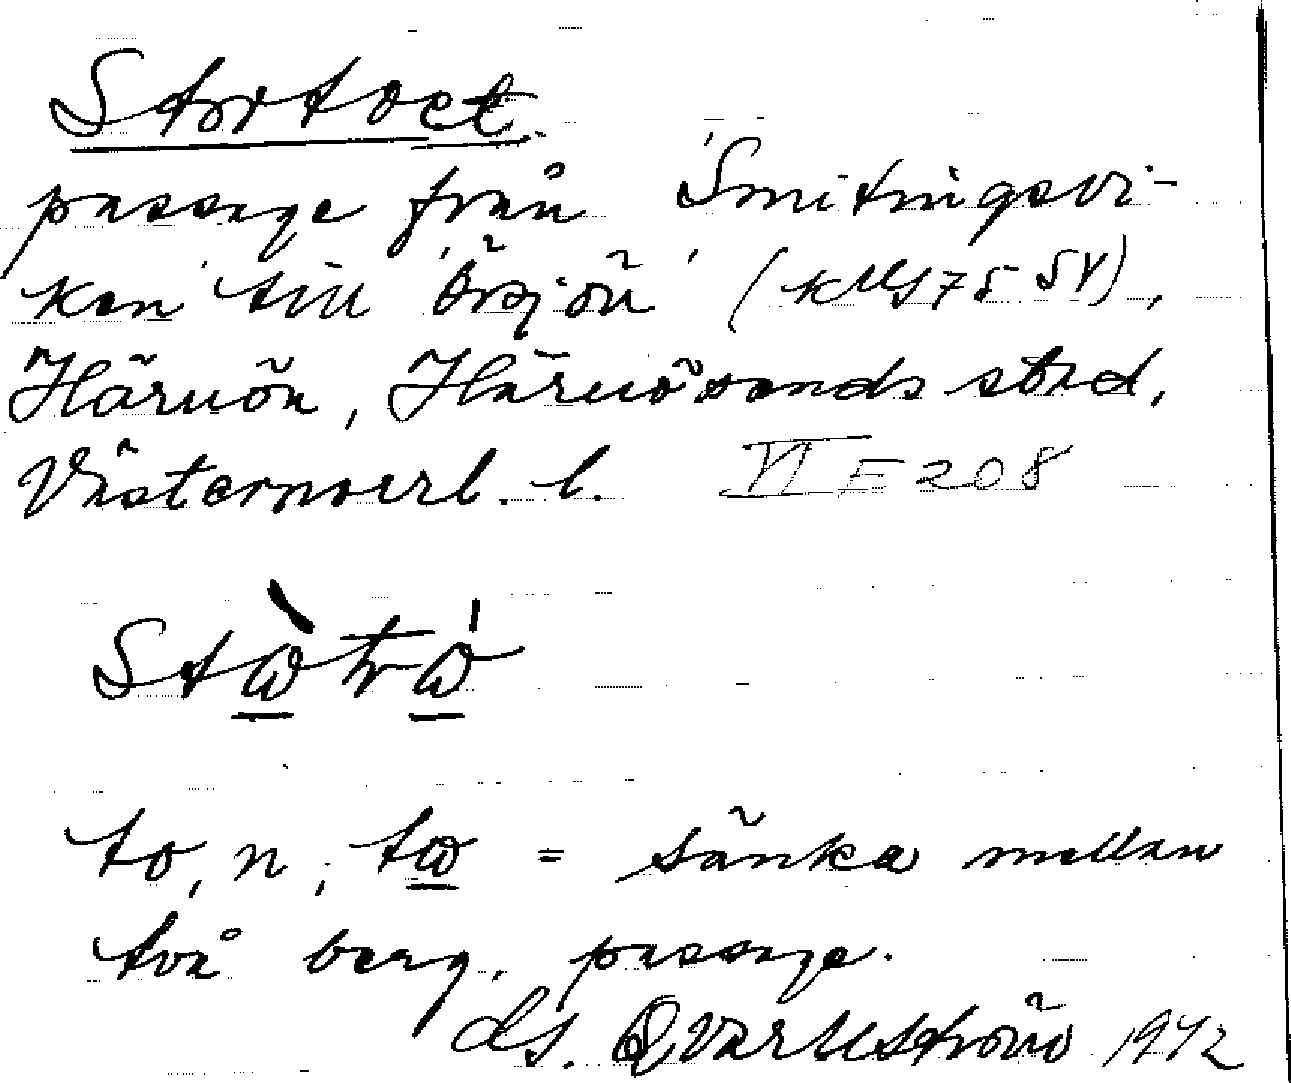 Stortoet
passage från 'Smitingsvi-
ken' till 'Örsjön' (KMS 75 SV),
Härnön, Härnösands stad,
Västernorrl. l. VI F 208
to, n, tω = sänka mellan
två berg, passage.
Ls. Qvarnström 1942